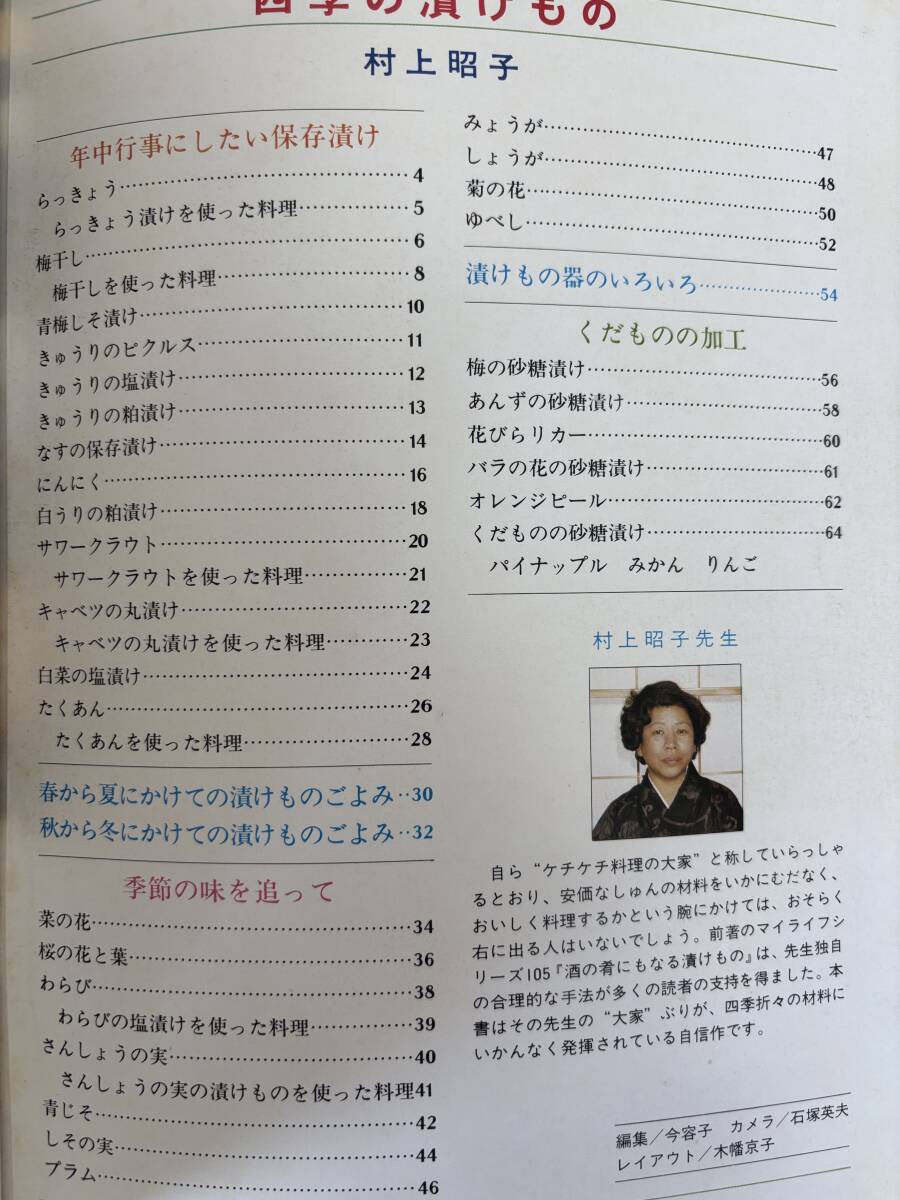 四季の漬けもの
村上昭子
年中行事にしたい保存漬け
らっきょう……4
らっきょう漬けを使った料理……5
梅干し……6
梅干しを使った料理……8
青梅しそ漬け……10
きゅうりのピクルス……11
きゅうりの塩漬け……12
きゅうりの粕漬け……13
なすの保存漬け……14
にんにく……16
白うりの粕漬け……18
サワークラウト……20
サワークラウトを使った料理……21
キャベツの丸漬け……22
キャベツの丸漬けを使った料理……23
白菜の塩漬け……24
たくあん……26
たくあんを使った料理……28
春から夏にかけての漬けものごよみ‥30
秋から冬にかけての漬けものごよみ‥32
季節の味を追って
菜の花……34
桜の花と葉……36
わらび……38
わらびの塩漬けを使った料理……39
さんしょうの実……40
さんしょうの実の漬けものを使った料理41
青じそ……42
しその実……44
プラム……46
みょうが……47
しょうが……48
菊の花……50
ゆべし……52
漬けもの器のいろいろ……54
くだものの加工
梅の砂糖漬け……56
あんずの砂糖漬け……58
花びらリカー……60
バラの花の砂糖漬け……61
オレンジピール……62
くだものの砂糖漬け……64
パイナップル　みかん　りんご
村上昭子先生
自ら“ケチケチ料理の大家”と称していらっしゃ
るとおり、安価なしゅんの材料をいかにむだなく、
おいしく料理するかという腕にかけては、おそらく
右に出る人はいないでしょう。前著のマイライフシ
リーズ105『酒の肴にもなる漬けもの』は、先生独自
の合理的な手法が多くの読者の支持を得ました。本
書はその先生の“大家”ぶりが、四季折々の材料に
いかんなく発揮されている自信作です。
編集／今容子　カメラ／石塚英夫
レイアウト／木幡京子